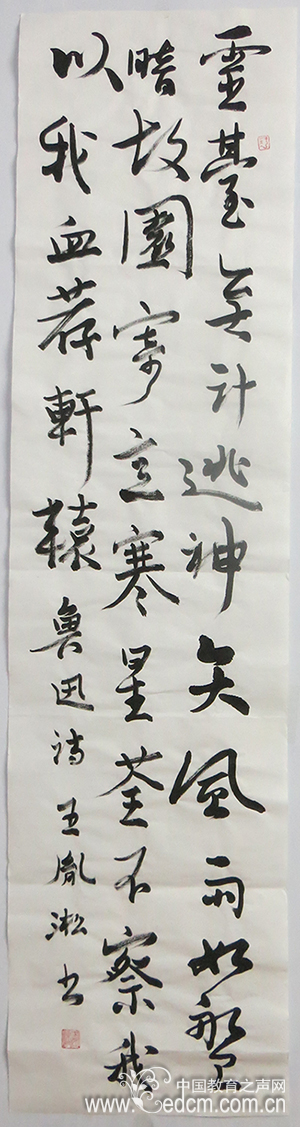 靈臺無計逃神矢風雨如磐
暗故園寄意寒星荃不察我
以我血薦軒轅魯迅詩王胤淞书
中国教育之声网
www.edcm.com.cn